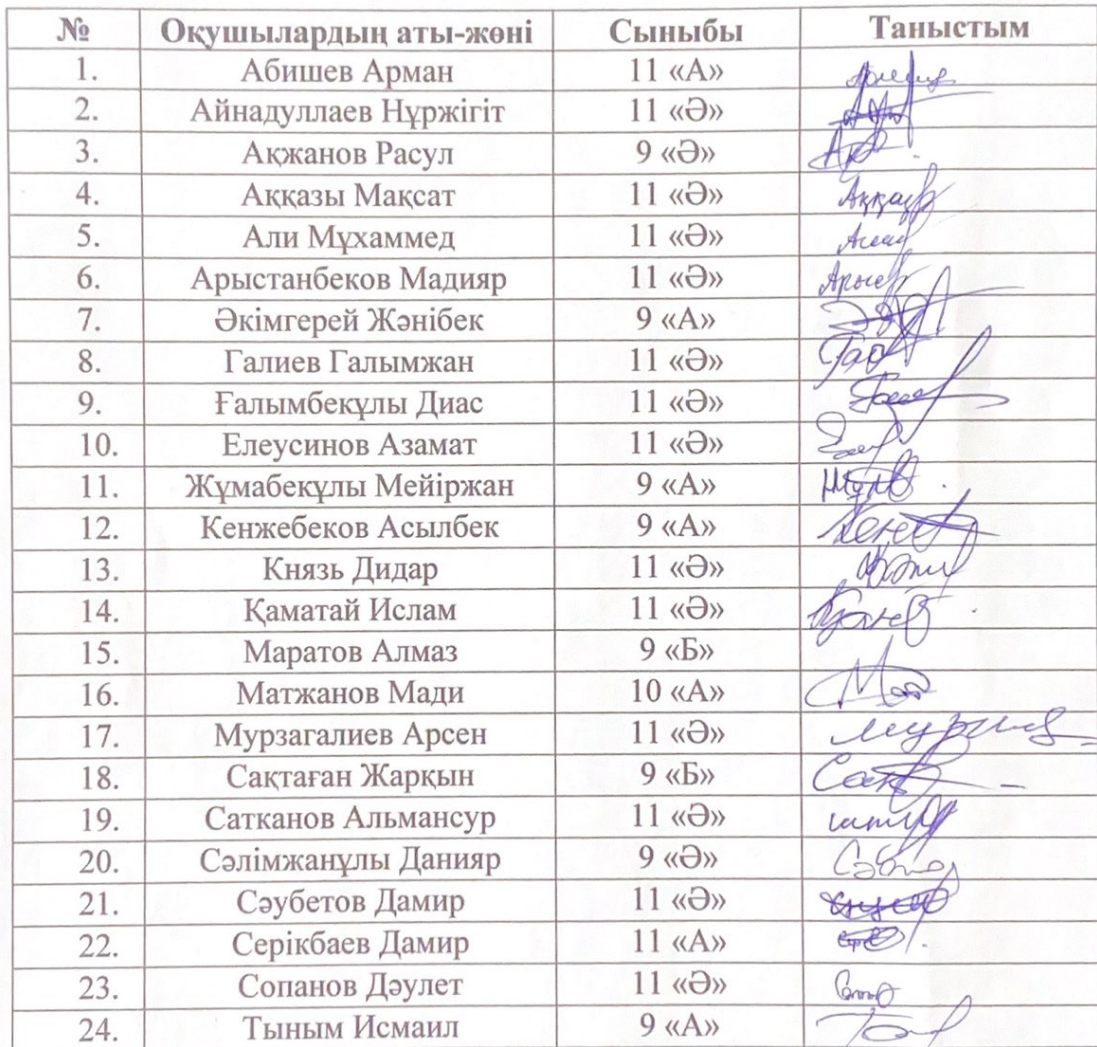 № Оқушылардың аты-жөні Сыныбы Таныстым
1. Абишев Арман 11 «А»
2. Айнадуллаев Нұржігіт 11 «Ә»
3. Ақжанов Расул 9 «Ә»
4. Аққазы Мақсат 11 «Ә»
5. Али Мұхаммед 11 «Ә»
6. Арыстанбеков Мадияр 11 «Ә»
7. Әкімгерей Жәнібек 9 «А»
8. Галиев Галымжан 11 «Ә»
9. Ғалымбекұлы Диас 11 «Ә»
10. Елеусинов Азамат 11 «Ә»
11. Жұмабекұлы Мейіржан 9 «А»
12. Кенжебеков Асылбек 9 «А»
13. Князь Дидар 11 «Ә»
14. Қаматай Ислам 11 «Ә»
15. Маратов Алмаз 9 «Б»
16. Матжанов Мади 10 «А»
17. Мурзагалиев Арсен 11 «Ә»
18. Сақтаған Жарқын 9 «Б»
19. Сатканов Альмансур 11 «Ә»
20. Сәлімжанұлы Данияр 9 «Ә»
21. Сәубетов Дамир 11 «Ә»
22. Серікбаев Дамир 11 «А»
23. Сопанов Дәулет 11 «Ә»
24. Тыным Исмаил 9 «А»